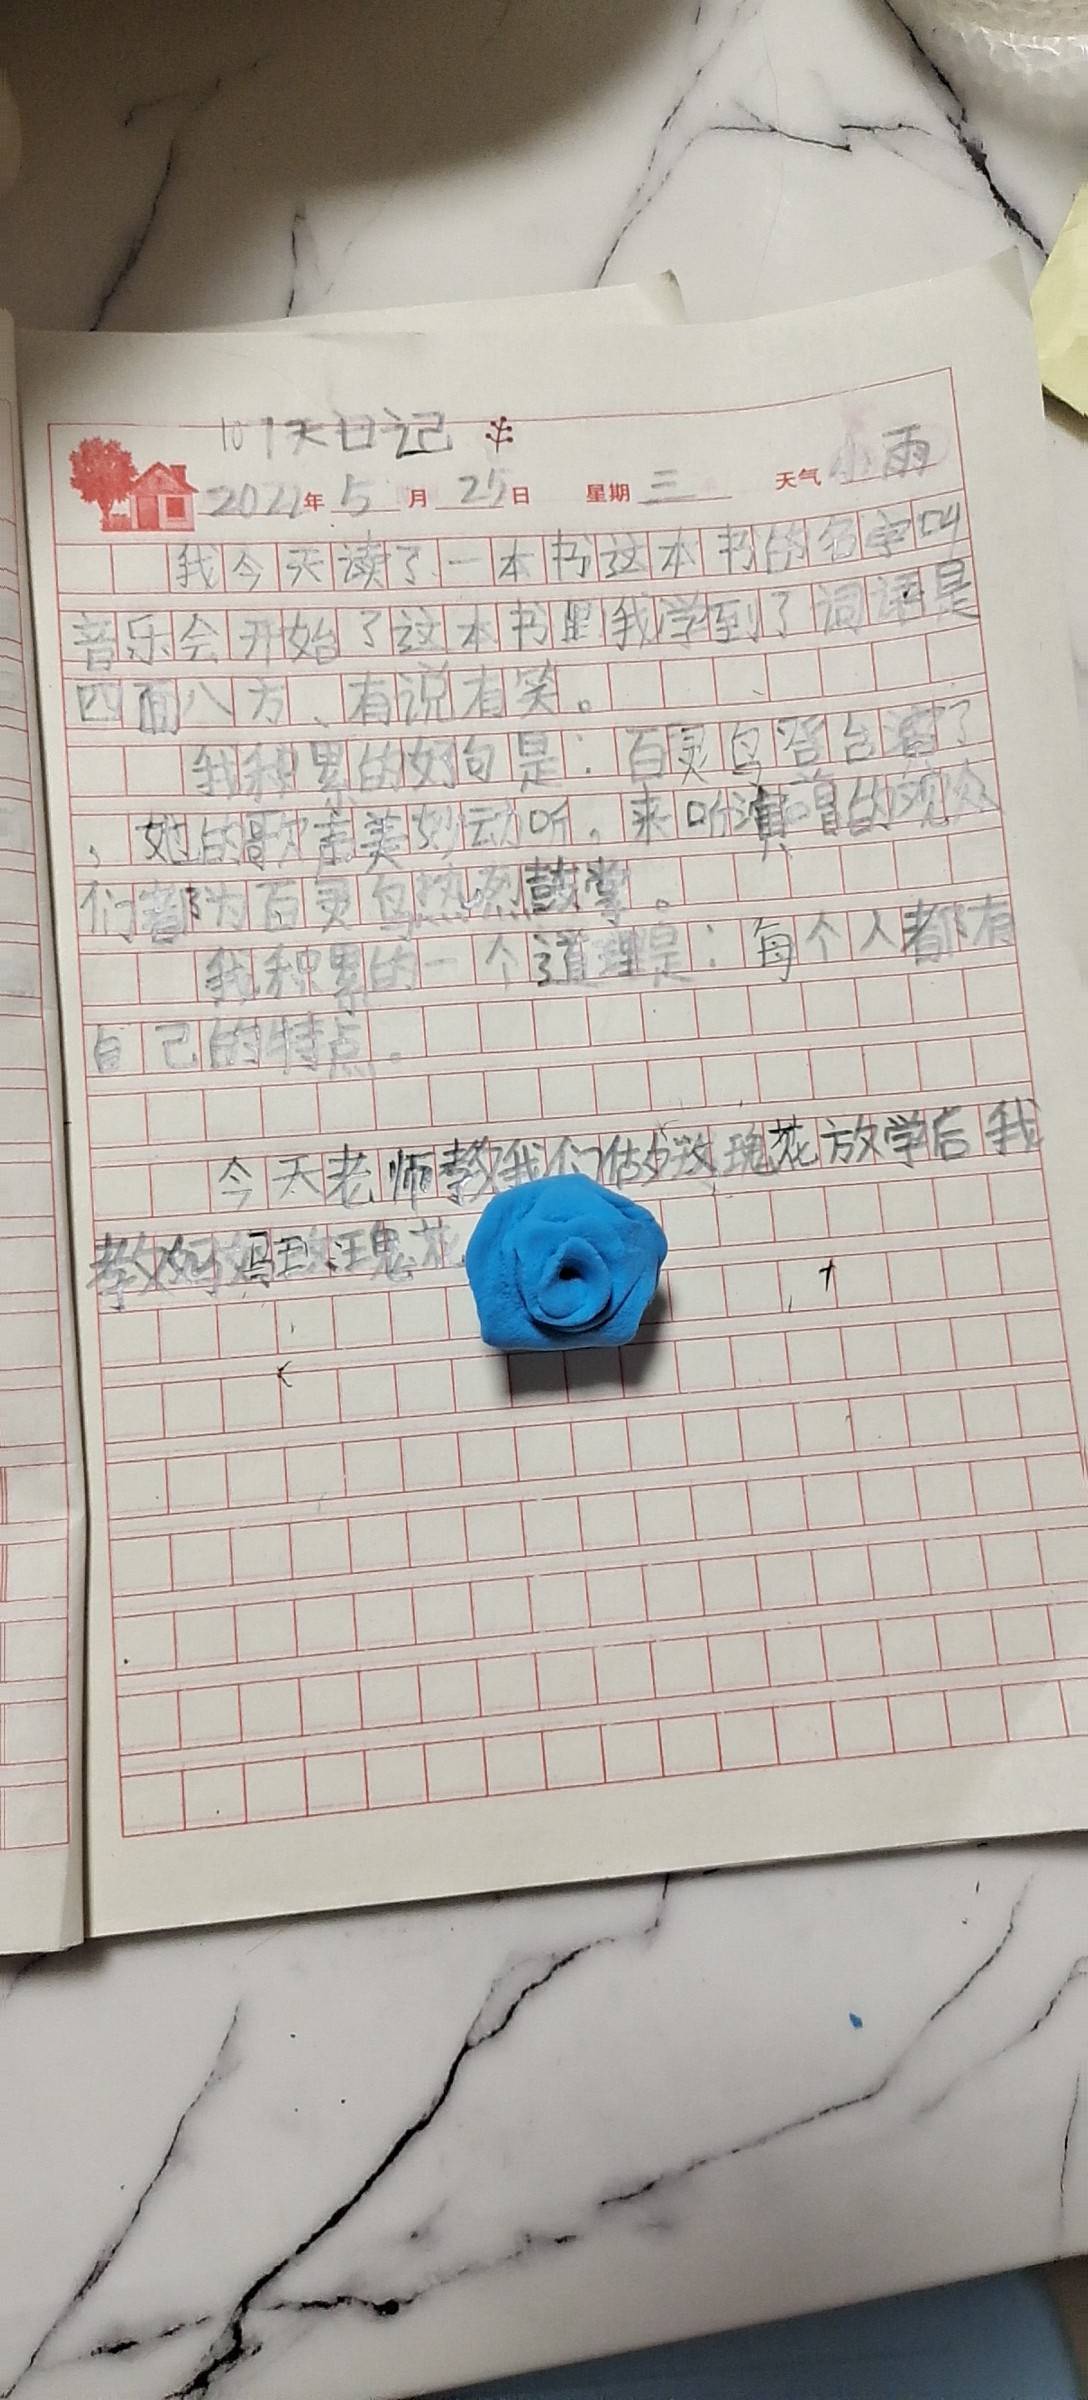 107天日记
2022年5月25日 星期三 天气小雨
我今天读了一本书这本书的名字叫
音乐会开始了这本书里我学到了词语是
四面八方、有说有笑。
我积累的好句是：百灵鸟登台演了
，她的歌声美妙动听，来听演唱的观众
们都为百灵鸟热烈鼓掌。
我积累的一个道理是：每个人都有
自己的特点。
今天老师教我们做玫瑰花放学后我
教妈妈玫瑰花